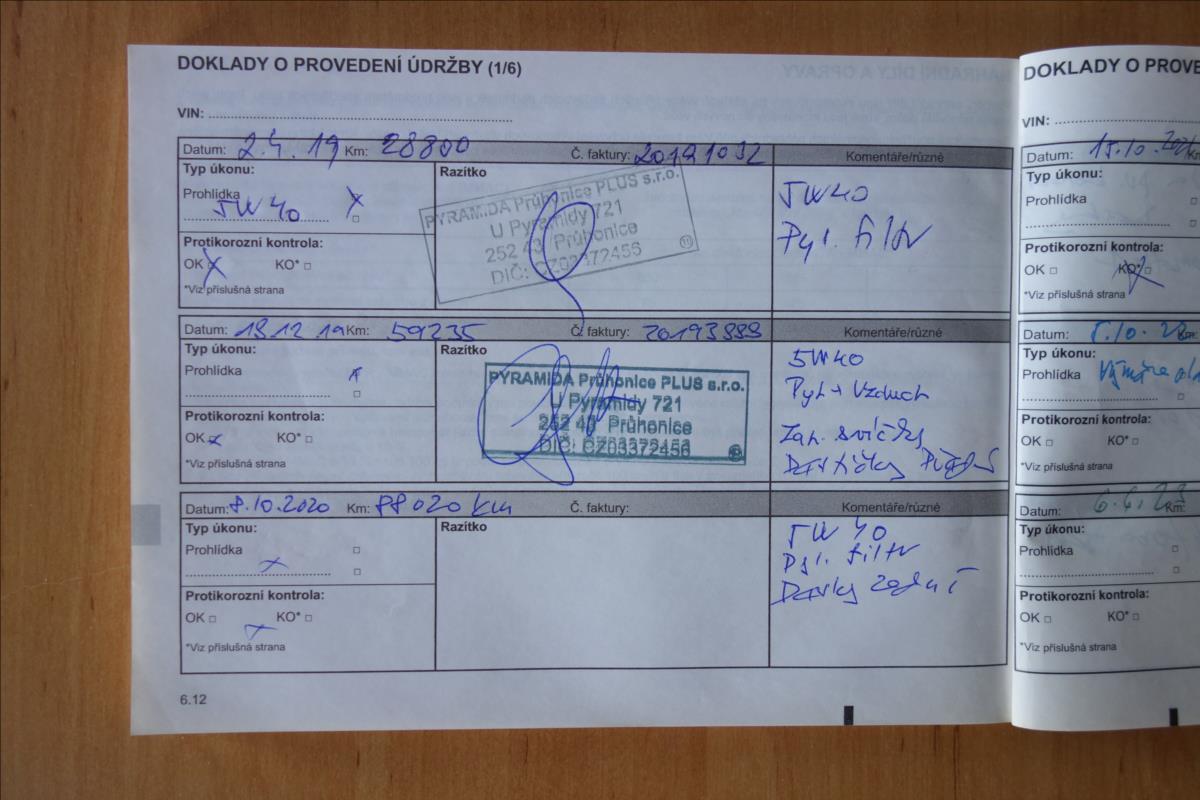 DOKLADY O PROVEDENÍ ÚDRŽBY (1/6)
VIN:
Datum: 2.4.19 Km: 28800 Č. faktury: 20191032 Komentáře/různé
Typ úkonu:
Prohlídka
5W40
Protikorozní kontrola:
OK KO*
*Viz příslušná strana
Razítko
PYRAMIDA Průhonice PLUS s.r.o.
U Pyramidy 721
252 43 Průhonice
DIČ: CZ03372456
5W40
Pyl. filtr
Datum: 18.12.19 Km: 59235 Č. faktury: 20193889 Komentáře/různé
Typ úkonu:
Prohlídka
Protikorozní kontrola:
OK KO*
*Viz příslušná strana
Razítko
PYRAMIDA Průhonice PLUS s.r.o.
U Pyramidy 721
252 43 Průhonice
DIČ: CZ03372456
5W40
Pyl + Vzduch
Zap. svíčky
Destičky
Datum: 8.10.2020 Km: 88020 km Č. faktury: Komentáře/různé
Typ úkonu:
Prohlídka
Protikorozní kontrola:
OK KO*
*Viz příslušná strana
Razítko
5W40
Pyl. filtr
zadní
6.12
DOKLADY O PROVE
VIN:
Datum: 15.10.
Typ úkonu:
Prohlídka
Protikorozní kontrola:
OK KO*
*Viz příslušná strana
Datum: 5.10.22 Km:
Typ úkonu:
Prohlídka Výměna
Protikorozní kontrola:
OK KO*
*Viz příslušná strana
Datum: 6.6.23 Km:
Typ úkonu:
Prohlídka
Protikorozní kontrola:
OK KO*
*Viz příslušná strana